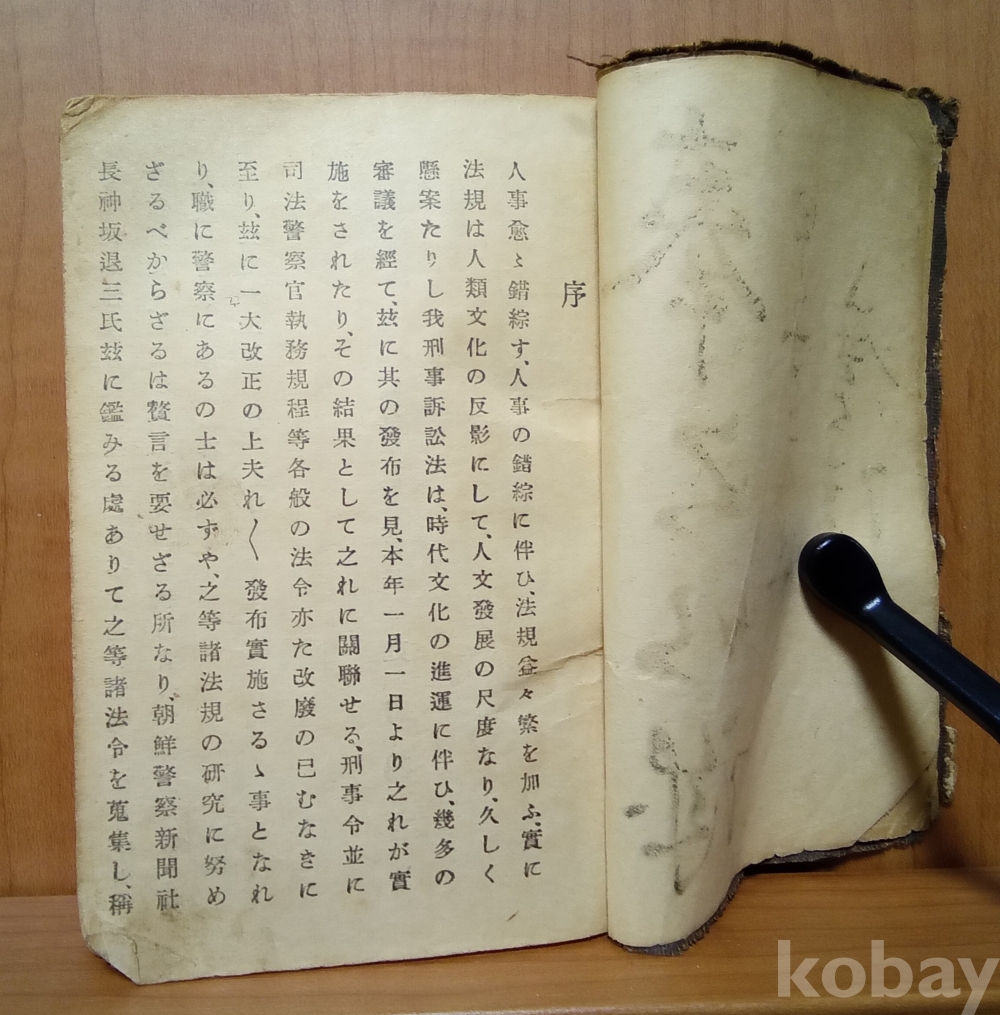 序
人事愈〻錯綜す、人事の錯綜に伴ひ、法規益々繁を加ふ、實に
法規は人類文化の反影にして、人文發展の尺度なり、久しく
懸案たりし我刑事訴訟法は、時代文化の進運に伴ひ、幾多の
審議を經て、玆に其の發布を見、本年一月一日より之れが實
施をされたり、その結果として之れに關聯せる、刑事令並に
司法警察官執務規程等各般の法令亦た改廢の已むなきに
至り、玆に一大改正の上夫れ〱發布實施さるゝ事となれ
り、職に警察にあるの士は必ずや、之等諸法規の研究に努め
ざるべからざるは贅言を要せざる所なり、朝鮮警察新聞社
長神坂退三氏玆に鑑みる處ありて之等諸法令を蒐集し、稱
kobay